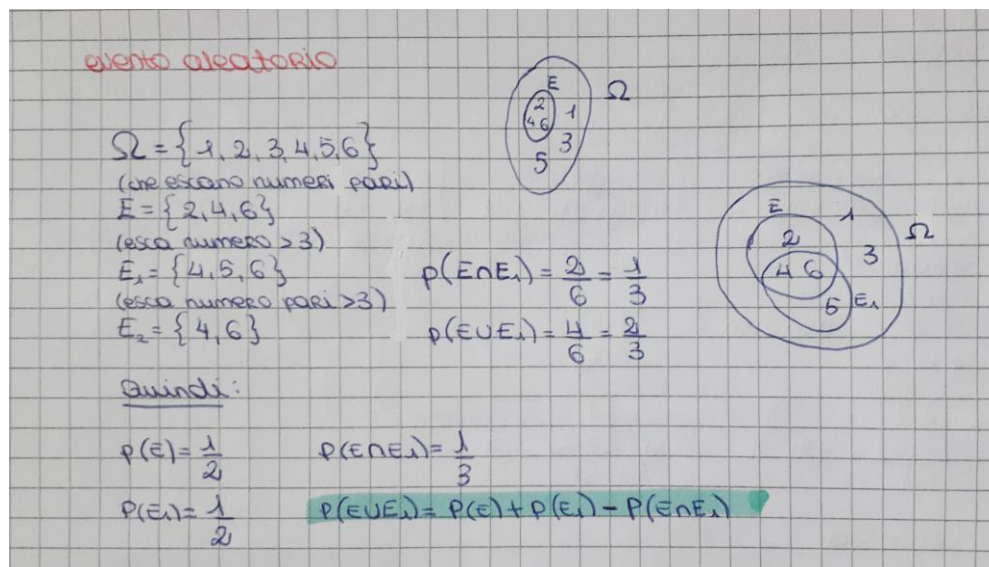 evento aleatorio
Ω = {1, 2, 3, 4, 5, 6}
(che escano numeri pari)
E = {2, 4, 6}
(esca numero > 3)
E₁ = {4, 5, 6}
(esca numero pari > 3)
E₂ = {4, 6}
E
Ω
2
4 6
1
3
5
E
1
Ω
2
3
4 6
5
E₁
P(E∩E₁) = 2/6 = 1/3
P(E∪E₁) = 4/6 = 2/3
Quindi:
P(E) = 1/2
P(E∩E₁) = 1/3
P(E₁) = 1/2
P(E∪E₁) = P(E) + P(E₁) - P(E∩E₁)